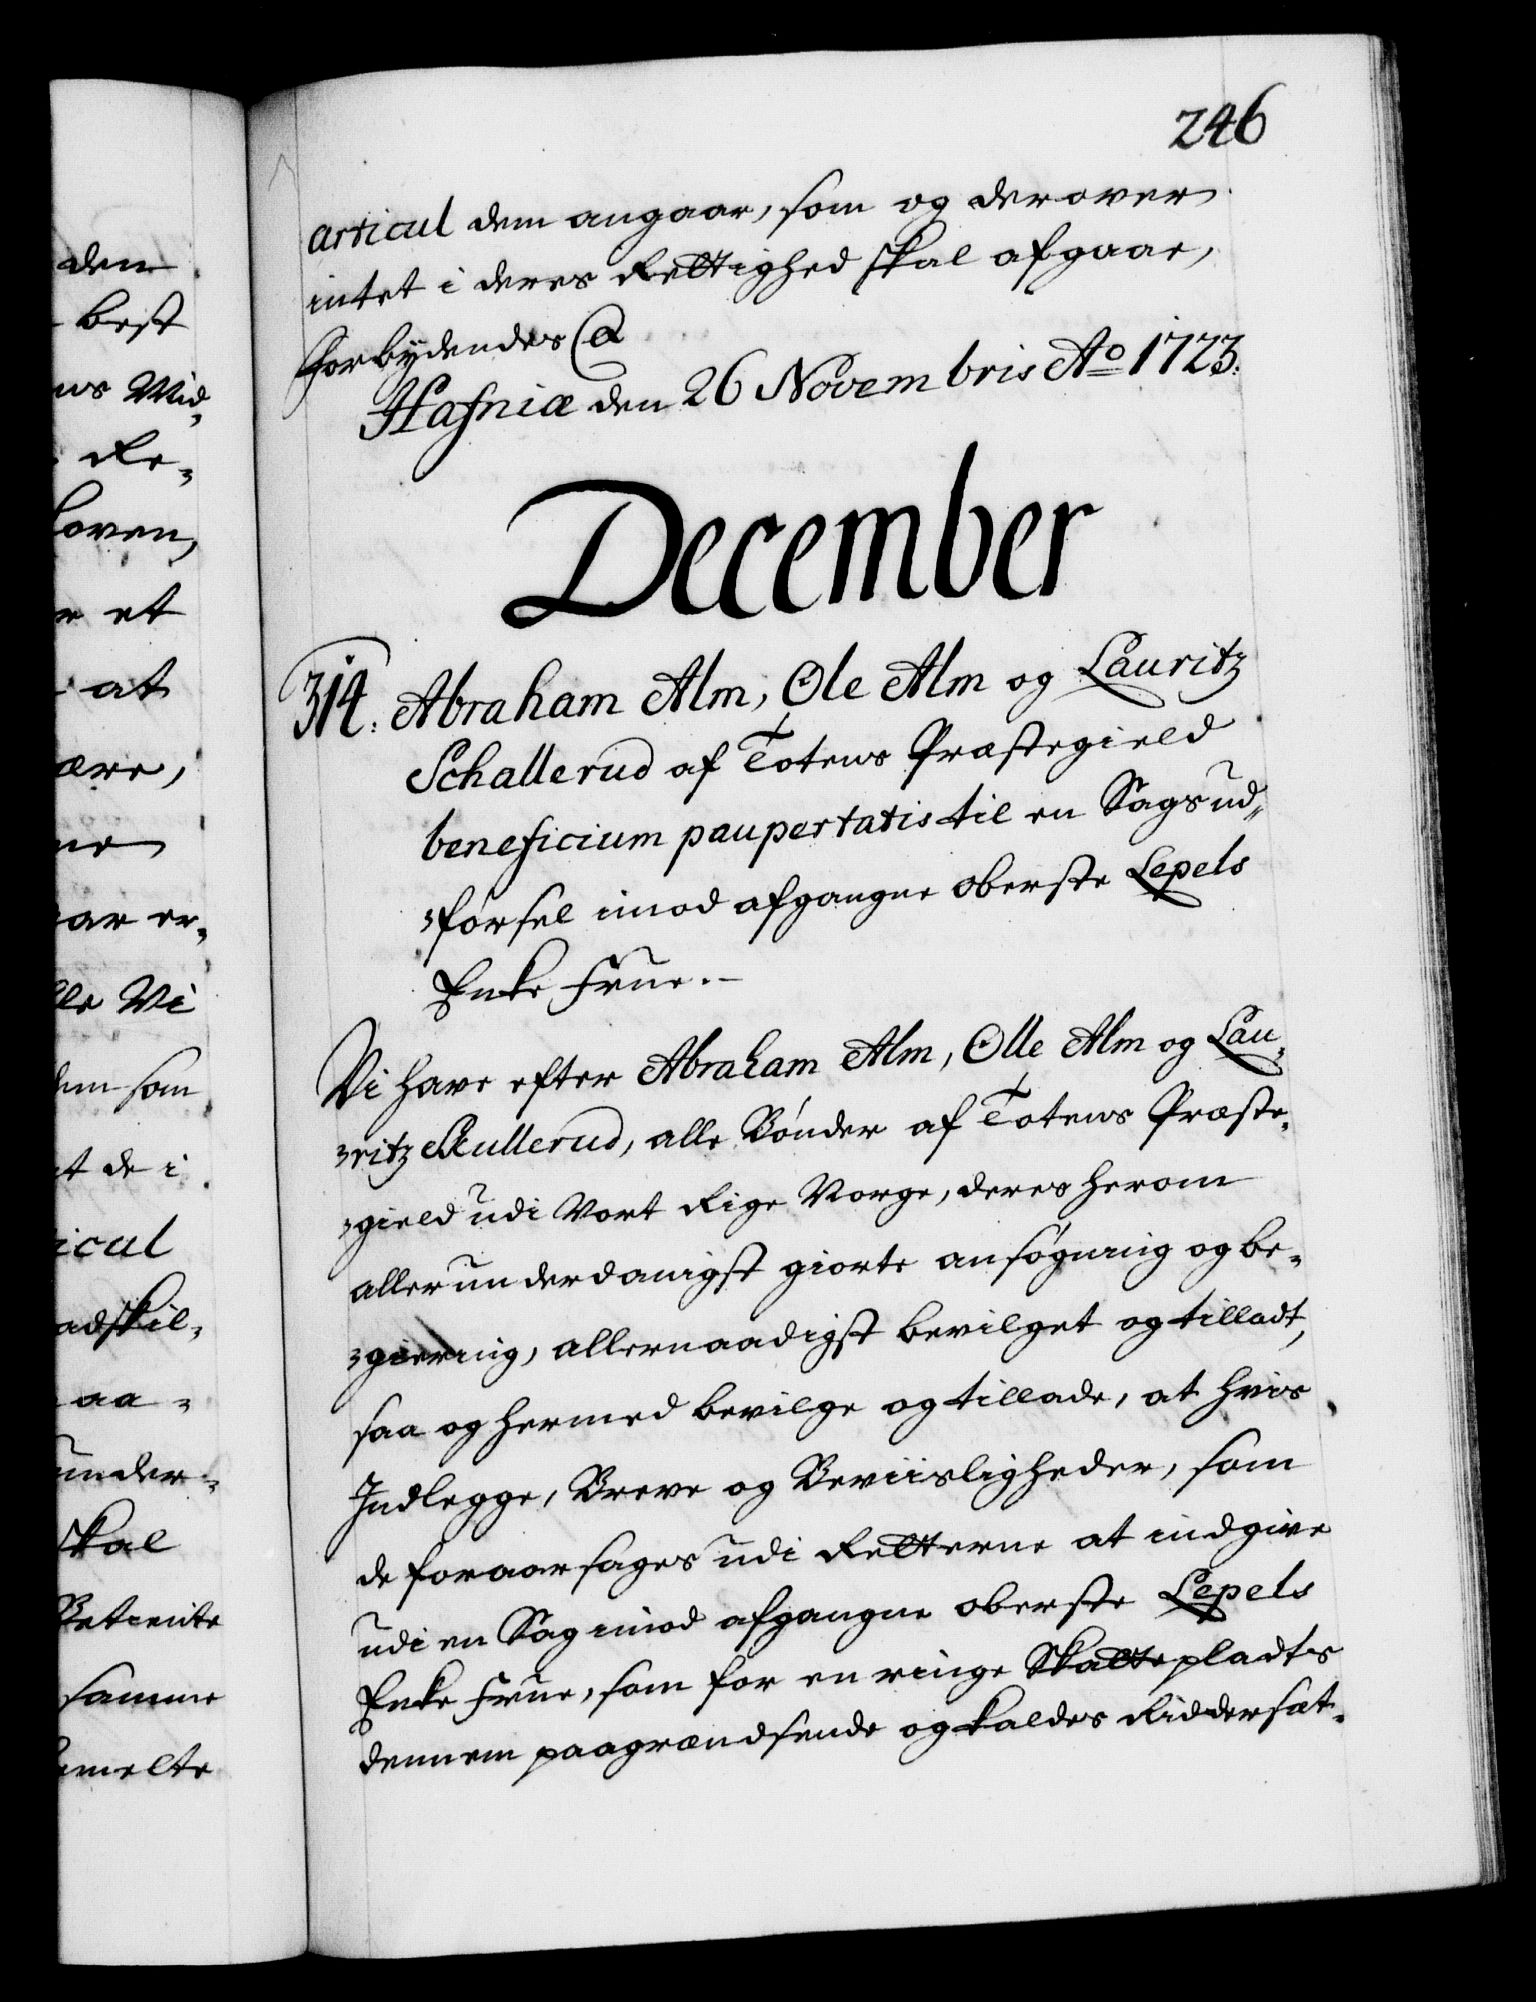 246
articul dem angaar, som og derover
intet i deres Rettighed skal afgaae,
Forbydendes &
Hafniæ den 26 Novembris Ao 1723.
December
314. Abraham Alm, Ole Alm og Lauritz
Schallerud af Totens Præstegield
beneficium paupertatis til en Sags ud-
førsel imod afgangne Oberste Lepels
Enke Frue.
Vi have efter Abraham Alm, Olle Alm og Lau-
ritz Skullerud, alle Bønder af Totens Præste-
gield udi Vort Rige Norge, deres herom
allerunderdanigst giorte ansøgning og be-
giering, allernaadigst bevilget og tilladt,
saa og hermed bevilge og tillade, at hvis
Indlegge, Breve og Beviisligheder, som
de foraarsages udi Retterne at indgive
udi en Sag imod afgangne Oberste Lepels
Enke Frue, som for en ringe Skatte pladts
dennem paagrændsende og kaldes Riddersæt-
den
best
ns Mid-
Re-
loven,
r et
at
ære,
ne
ar er-
lle Vi
dem som
t de i
icul
adskil-
aa-
under-
skal
Betiente
samme
melte